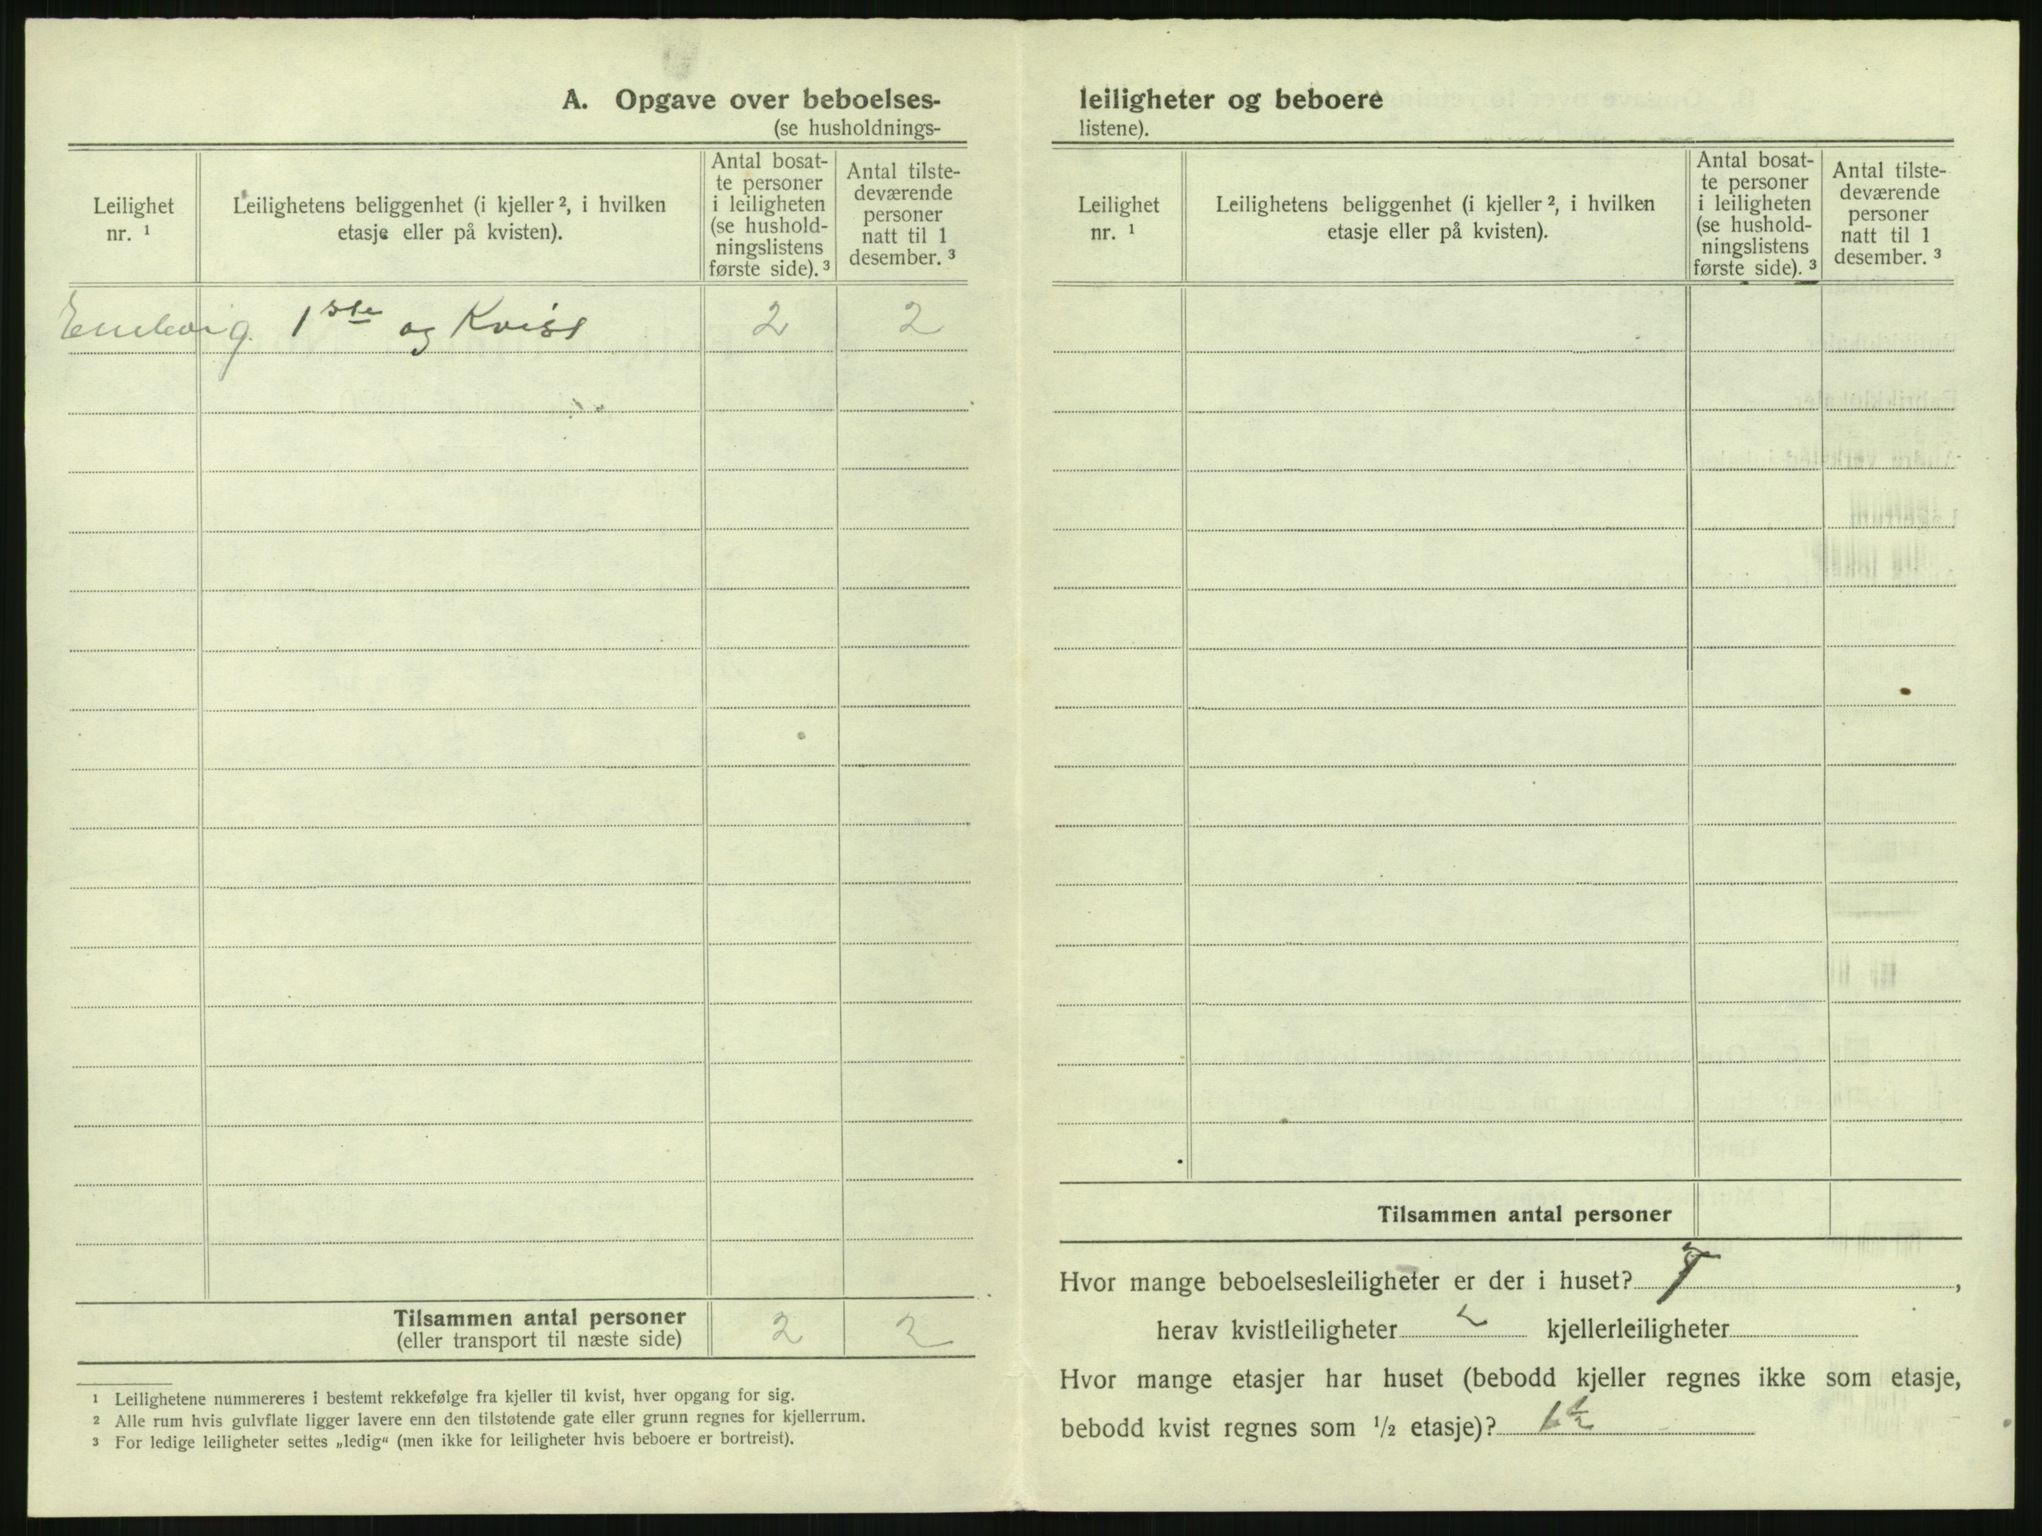 A. Opgave over beboelses-
(se husholdnings-
Leilighet nr. ¹
Leilighetens beliggenhet (i kjeller ², i hvilken etasje eller på kvisten).
Antal bosat-
te personer
i leiligheten
(se hushold-
ningslistens
første side). ³
Antal tilste-
deværende
personer
natt til 1
desember. ³
1ste og Kvist 2 2
Tilsammen antal personer 2 2
(eller transport til næste side)
¹ Leilighetene nummereres i bestemt rekkefølge fra kjeller til kvist, hver opgang for sig.
² Alle rum hvis gulvflate ligger lavere enn den tilstøtende gate eller grunn regnes for kjellerrum.
³ For ledige leiligheter settes „ledig“ (men ikke for leiligheter hvis beboere er bortreist).
leiligheter og beboere
listene).
Leilighet nr. ¹
Leilighetens beliggenhet (i kjeller ², i hvilken etasje eller på kvisten).
Antal bosat-
te personer
i leiligheten
(se hushold-
ningslistens
første side). ³
Antal tilste-
deværende
personer
natt til 1
desember. ³
Tilsammen antal personer
Hvor mange beboelsesleiligheter er der i huset? ,
herav kvistleiligheter kjellerleiligheter
Hvor mange etasjer har huset (bebodd kjeller regnes ikke som etasje,
bebodd kvist regnes som ½ etasje)? 1½